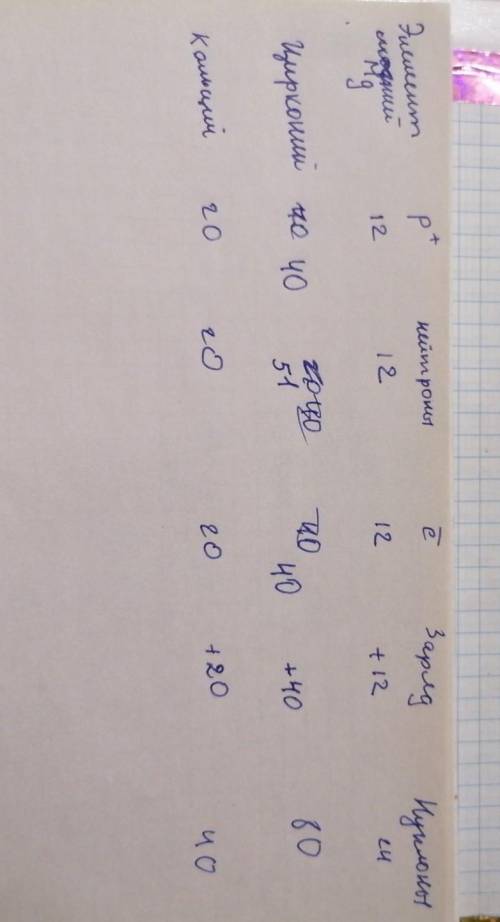 Элемент p⁺ нейтроны e̅ Заряд Нуклоны
Mg 12 12 12 +12 24
Цирконий 40 51 40 +40 80
Кальций 20 20 20 +20 40